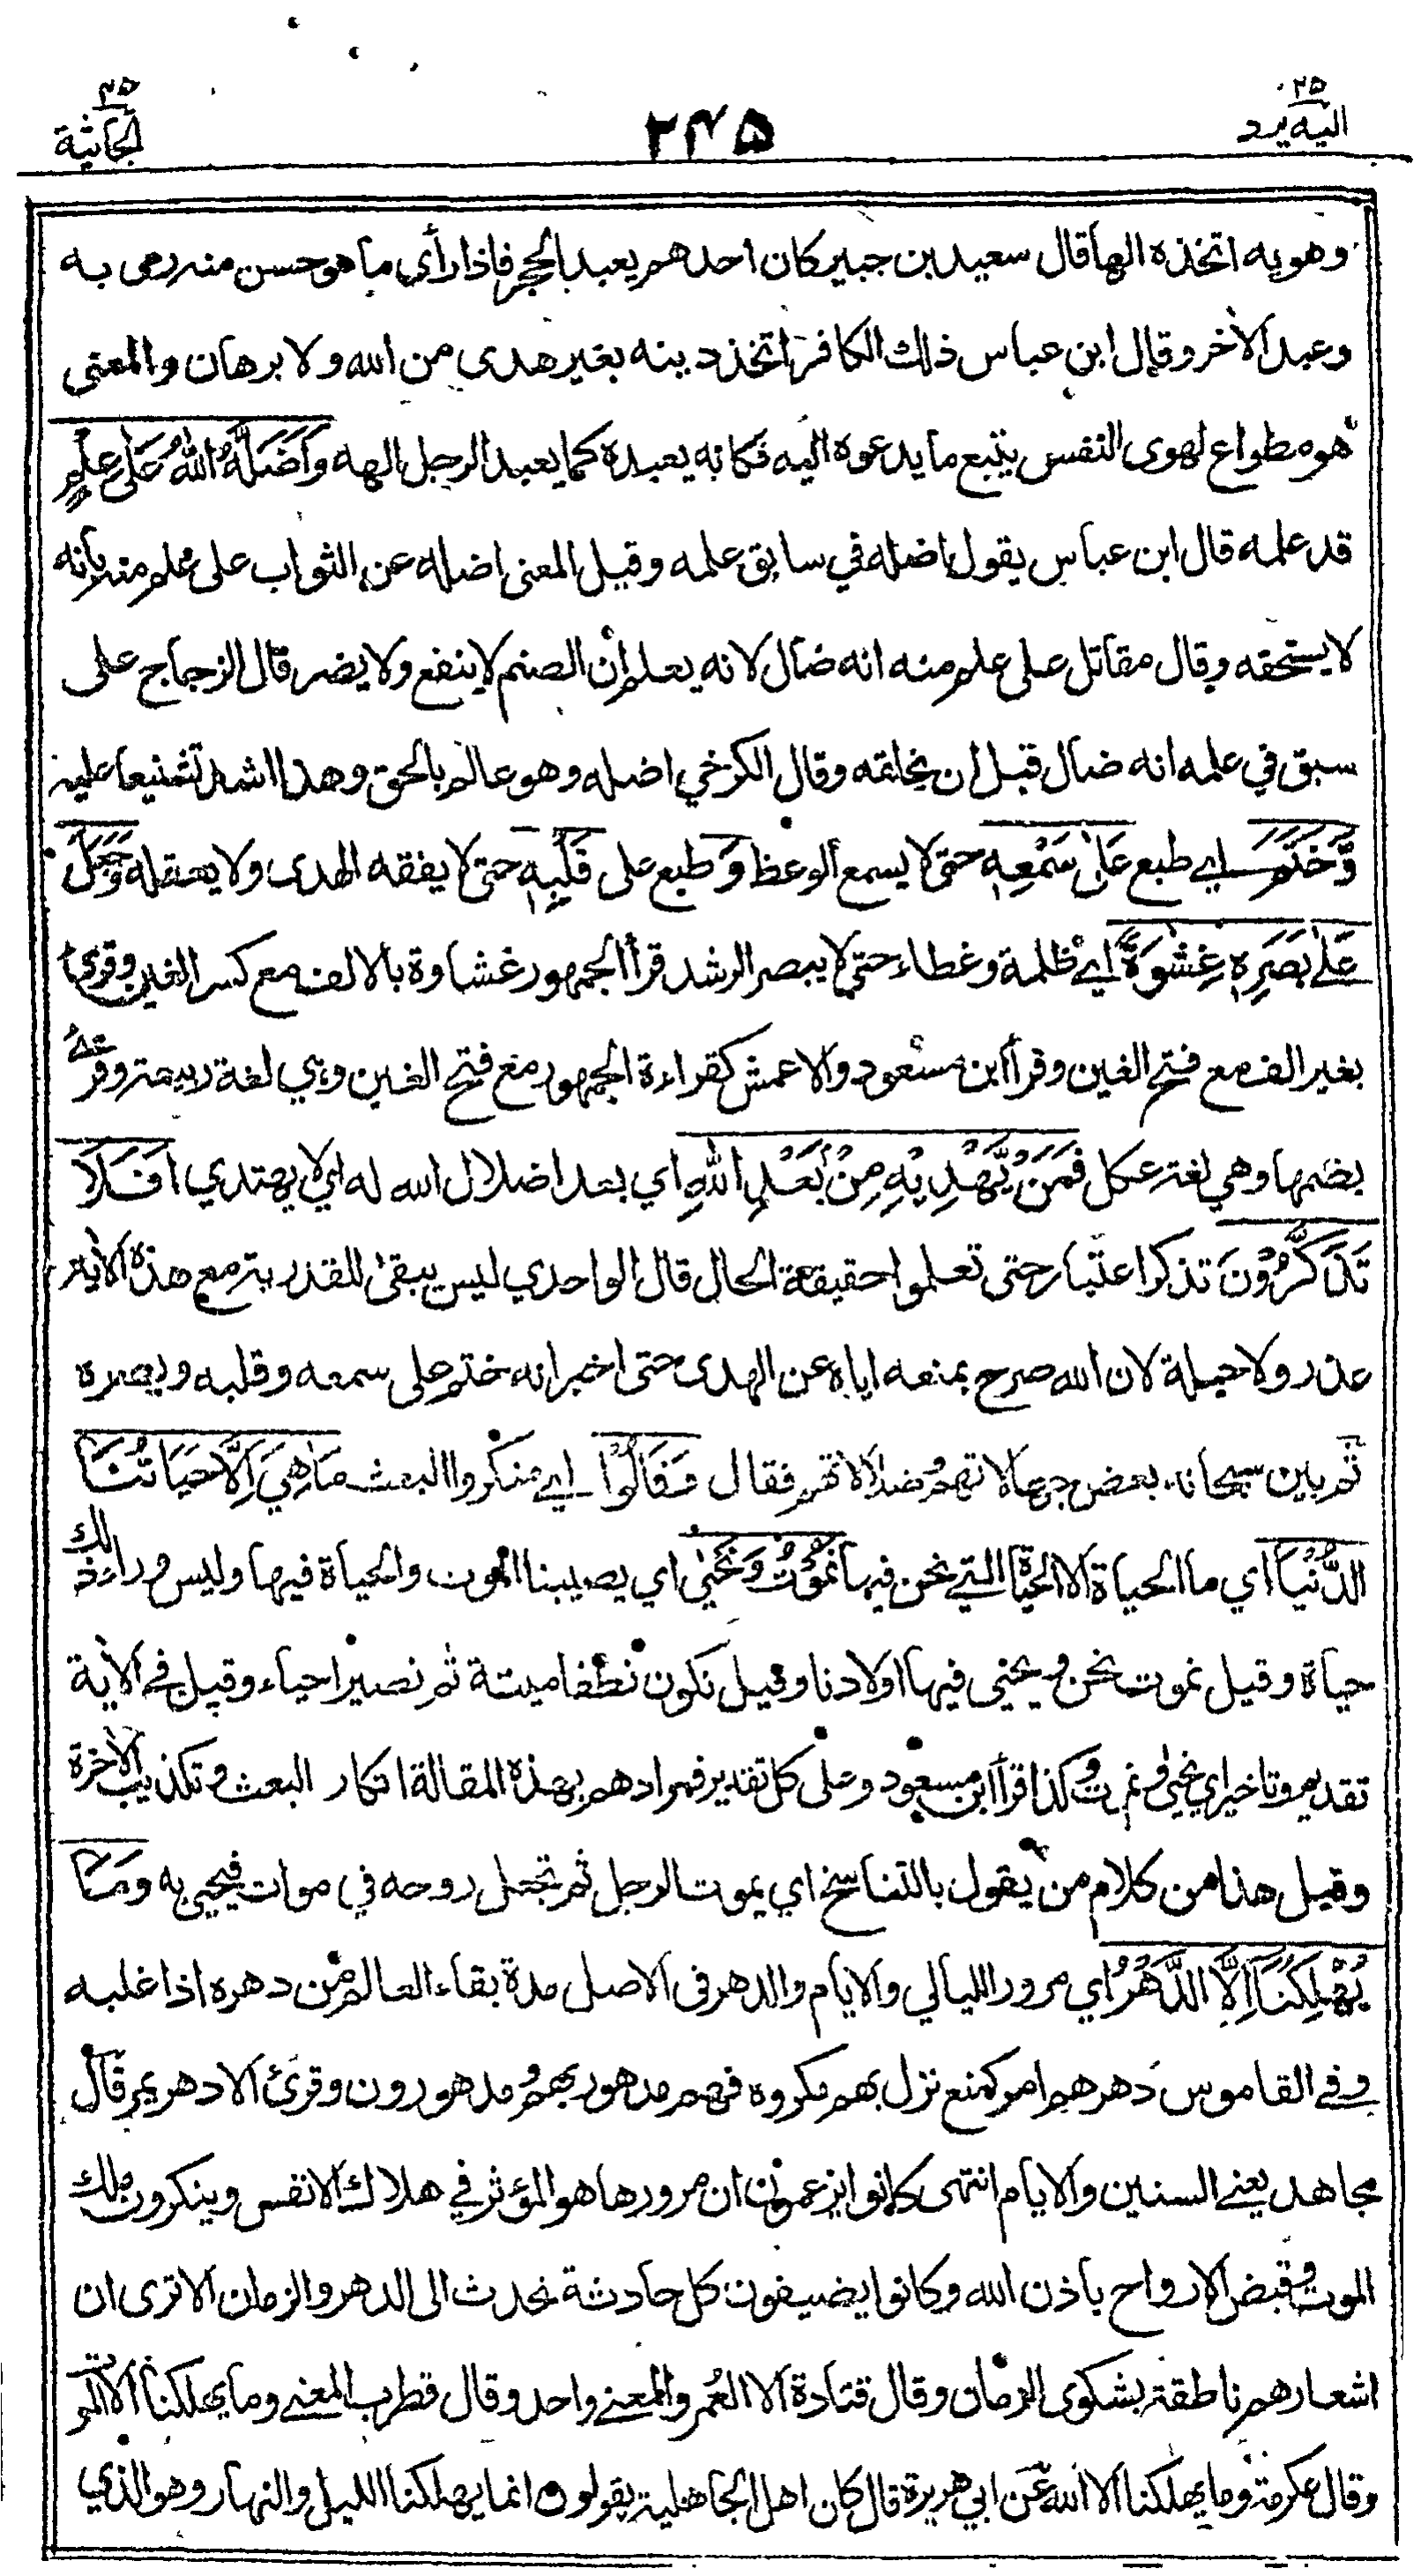 ٢٥
اليه يرد
٢٤٥
٤٥
الجاثية
وهويه اتخذه الها قال سعيد بن جبير كان احدهم يعبد الحجر فاذا رأى ما هو حسن منه رمى به
وعبد الآخر وقال ابن عباس ذلك الكافر اتخذ دينه بغير هدى من الله ولا برهان والمعنى
هو مطواع لهوى النفس يتبع ما يدعوه اليه فكانه يعبده كما يعبد الرجل الهه وَاَضَلَّهُ اللّٰهُ عَلٰى عِلْمٍ
قد علمه قال ابن عباس يقول اضله في سابق علمه وقيل المعنى اضله عن الثواب على علم منه بأنه
لا يستحقه وقال مقاتل على علم منه انه ضال لانه يعلم ان الصنم لا ينفع ولا يضر قال الزجاج على
سبق في علمه انه ضال قبل ان يخلقه وقال الكرخي اضله وهو عالم بالحق وهذا اشد تشنيعا عليه
وَّخَتَمَ اي طبع عَلٰى سَمْعِهٖ حتى لا يسمع الوعظ وَ طبع على قَلْبِهٖ حتى لا يفقه الهدى ولا يعقله وَجَعَلَ
عَلٰى بَصَرِهٖ غِشٰوَةً اي ظلمة وغطاء حتى لا يبصر الرشد قرأ الجمهور غشاوة بالالف مع كسر الغين وقرئ
بغير الف مع فتح الغين وقرأ ابن مسعود والاعمش كقراءة الجمهور مع فتح الغين وهي لغة ربيعة وقرئ
بضمها وهي لغة عكل فَمَنْ يَّهْدِيْهِ مِنْۢ بَعْدِ اللّٰهِ اي بعد اضلال الله له اي لا يهتدي اَفَلَا
تَذَكَّرُوْنَ تذكر اعتبار حتى تعلموا حقيقة الحال قال الواحدي ليس يبقى للقدرية مع هذه الآية
عذر ولا حيلة لان الله صرح بمنعه اياه عن الهدى حتى اخبر انه ختم على سمعه وقلبه وبصره
ثم بين سبحانه بعض جهالاتهم وضلالاتهم فقال وَقَالُوْا اي منكروا البعث مَا هِيَ اِلَّا حَيَاتُنَا
الدُّنْيَا اي ما الحياة الا الحياة التي نحن فيها نَمُوْتُ وَنَحْيٰى اي يصيبنا الموت والحياة فيها وليس وراء ذلك
حياة وقيل نموت نحن ويحيى فيها اولادنا وقيل نكون نطفا ميتة ثم نصير احياء وقيل في الآية
تقديم وتاخير اي نحيى ونموت وكذا قرأ ابن مسعود وعلى كل تقدير فمرادهم بهذه المقالة انكار البعث وتكذيب الآخرة
وقيل هذا من كلام من يقول بالتناسخ اي يموت الرجل ثم تجعل روحه في موات فيحيى به وَمَا
يُهْلِكُنَا اِلَّا الدَّهْرُ اي مرور الليالي والايام والدهر في الاصل مدة بقاء العالم من دهره اذا غلبه
وفي القاموس دهرهم امر كمنع نزل بهم مكروه فهم مدهور بهم ومدهورون وقرئ الا دهر يمر قال
مجاهد يعني السنين والايام انتهى كانوا يزعمون ان مرورها هو المؤثر في هلاك الانفس وينكرون ملك
الموت وقبض الارواح باذن الله وكانوا يضيفون كل حادثة تحدث الى الدهر والزمان الا ترى ان
اشعارهم ناطقة بشكوى الزمان وقال قتادة الا العمر والمعنى واحد وقال قطرب المعنى وما يهلكنا الا الموت
وقال عكرمة وما يهلكنا الا الله عن ابي هريرة قال كان اهل الجاهلية يقولون انما يهلكنا الليل والنهار وهو الذي